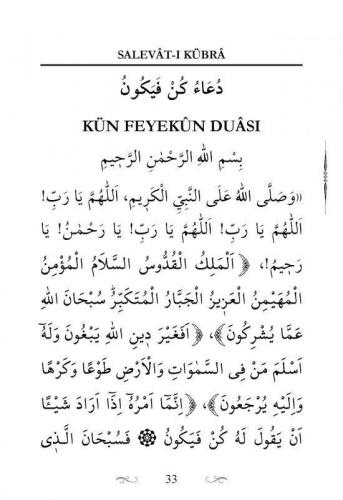 SALEVÂT-I KÜBRÂ
دُعَاءُ كُنْ فَيَكُونُ
KÜN FEYEKÛN DUÂSI
بِسْمِ اللهِ الرَّحْمٰنِ الرَّحٖيمِ
«وَصَلَّى اللهُ عَلَى النَّبِيِّ الْكَرٖيمِ، اَللّٰهُمَّ يَا رَبِّ!
اَللّٰهُمَّ يَا رَبِّ! اَللّٰهُمَّ يَا رَبِّ! يَا رَحْمٰنُ! يَا
رَحٖيمُ!، ﴿اَلْمَلِكُ الْقُدُّوسُ السَّلَامُ الْمُؤْمِنُ
الْمُهَيْمِنُ الْعَزٖيزُ الْجَبَّارُ الْمُتَكَبِّرُ سُبْحَانَ اللهِ
عَمَّا يُشْرِكُونَ﴾، ﴿اَفَغَيْرَ دٖينِ اللهِ يَبْغُونَ وَلَهُٓ
اَسْلَمَ مَنْ فِي السَّمٰوَاتِ وَالْاَرْضِ طَوْعًا وَكَرْهًا
وَاِلَيْهِ يُرْجَعُونَ﴾، ﴿اِنَّمَٓا اَمْرُهُٓ اِذَٓا اَرَادَ شَيْـًٔا
اَنْ يَقُولَ لَهُ كُنْ فَيَكُونُ ۞ فَسُبْحَانَ الَّذٖي
33